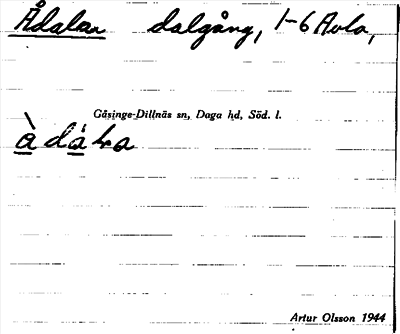 Ådalen dalgång, 1-6 Avla,
Gåsinge-Dillnäs sn, Daga hd, Söd. l.
Artur Olsson 1944